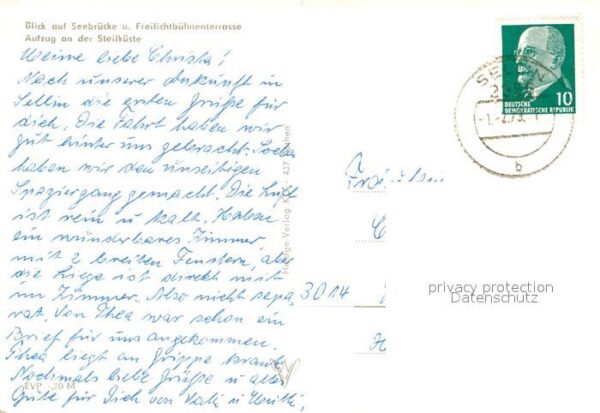 Blick auf Seebrücke u. Freilichtbühnenterrasse
Aufzug an der Steilküste
Meine liebe Christa!
Nach unserer Ankunft in
Sellin die ersten Grüße für
dich. Die Fahrt haben wir
gut hinter uns gebracht.
haben wir den
Spaziergang gemacht. Die Luft
ist rein u. kalt. Haben
ein wunderbares Zimmer
mit 2 breiten Fenstern, aber
die Liege ist direkt mit
im Zimmer. Also nicht sepa,
rat. Von Thea war schon ein
Brief für uns angekommen.
Thea liegt an Grippe krank.
Nochmals liebe Grüße u. alles
Gute für Dich von
EVP -,20 M
SELLIN
DEUTSCHE
DEMOKRATISCHE REPUBLIK
10
b
Fräulein
C
3014
H
privacy protection
Datenschutz